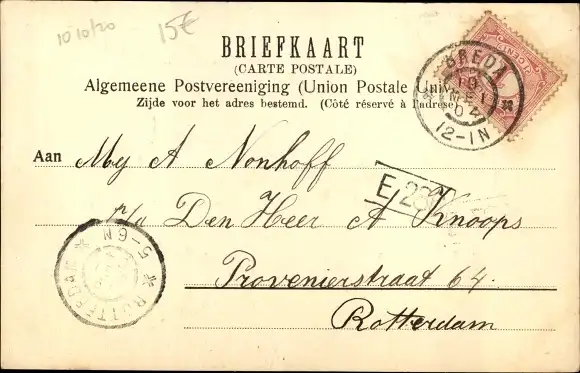 10/10/20
15€
BRIEFKAART
(CARTE POSTALE)
Algemeene Postvereeniging (Union Postale Univ
Zijde voor het adres bestemd. (Côté réservé à l'adresse
BREDA
12-1N
Aan Mej A Nonhoff
E 28
p/a Den Heer A Knoops
Provenierstraat 64.
Rotterdam
ROTTERDAM
5-6N